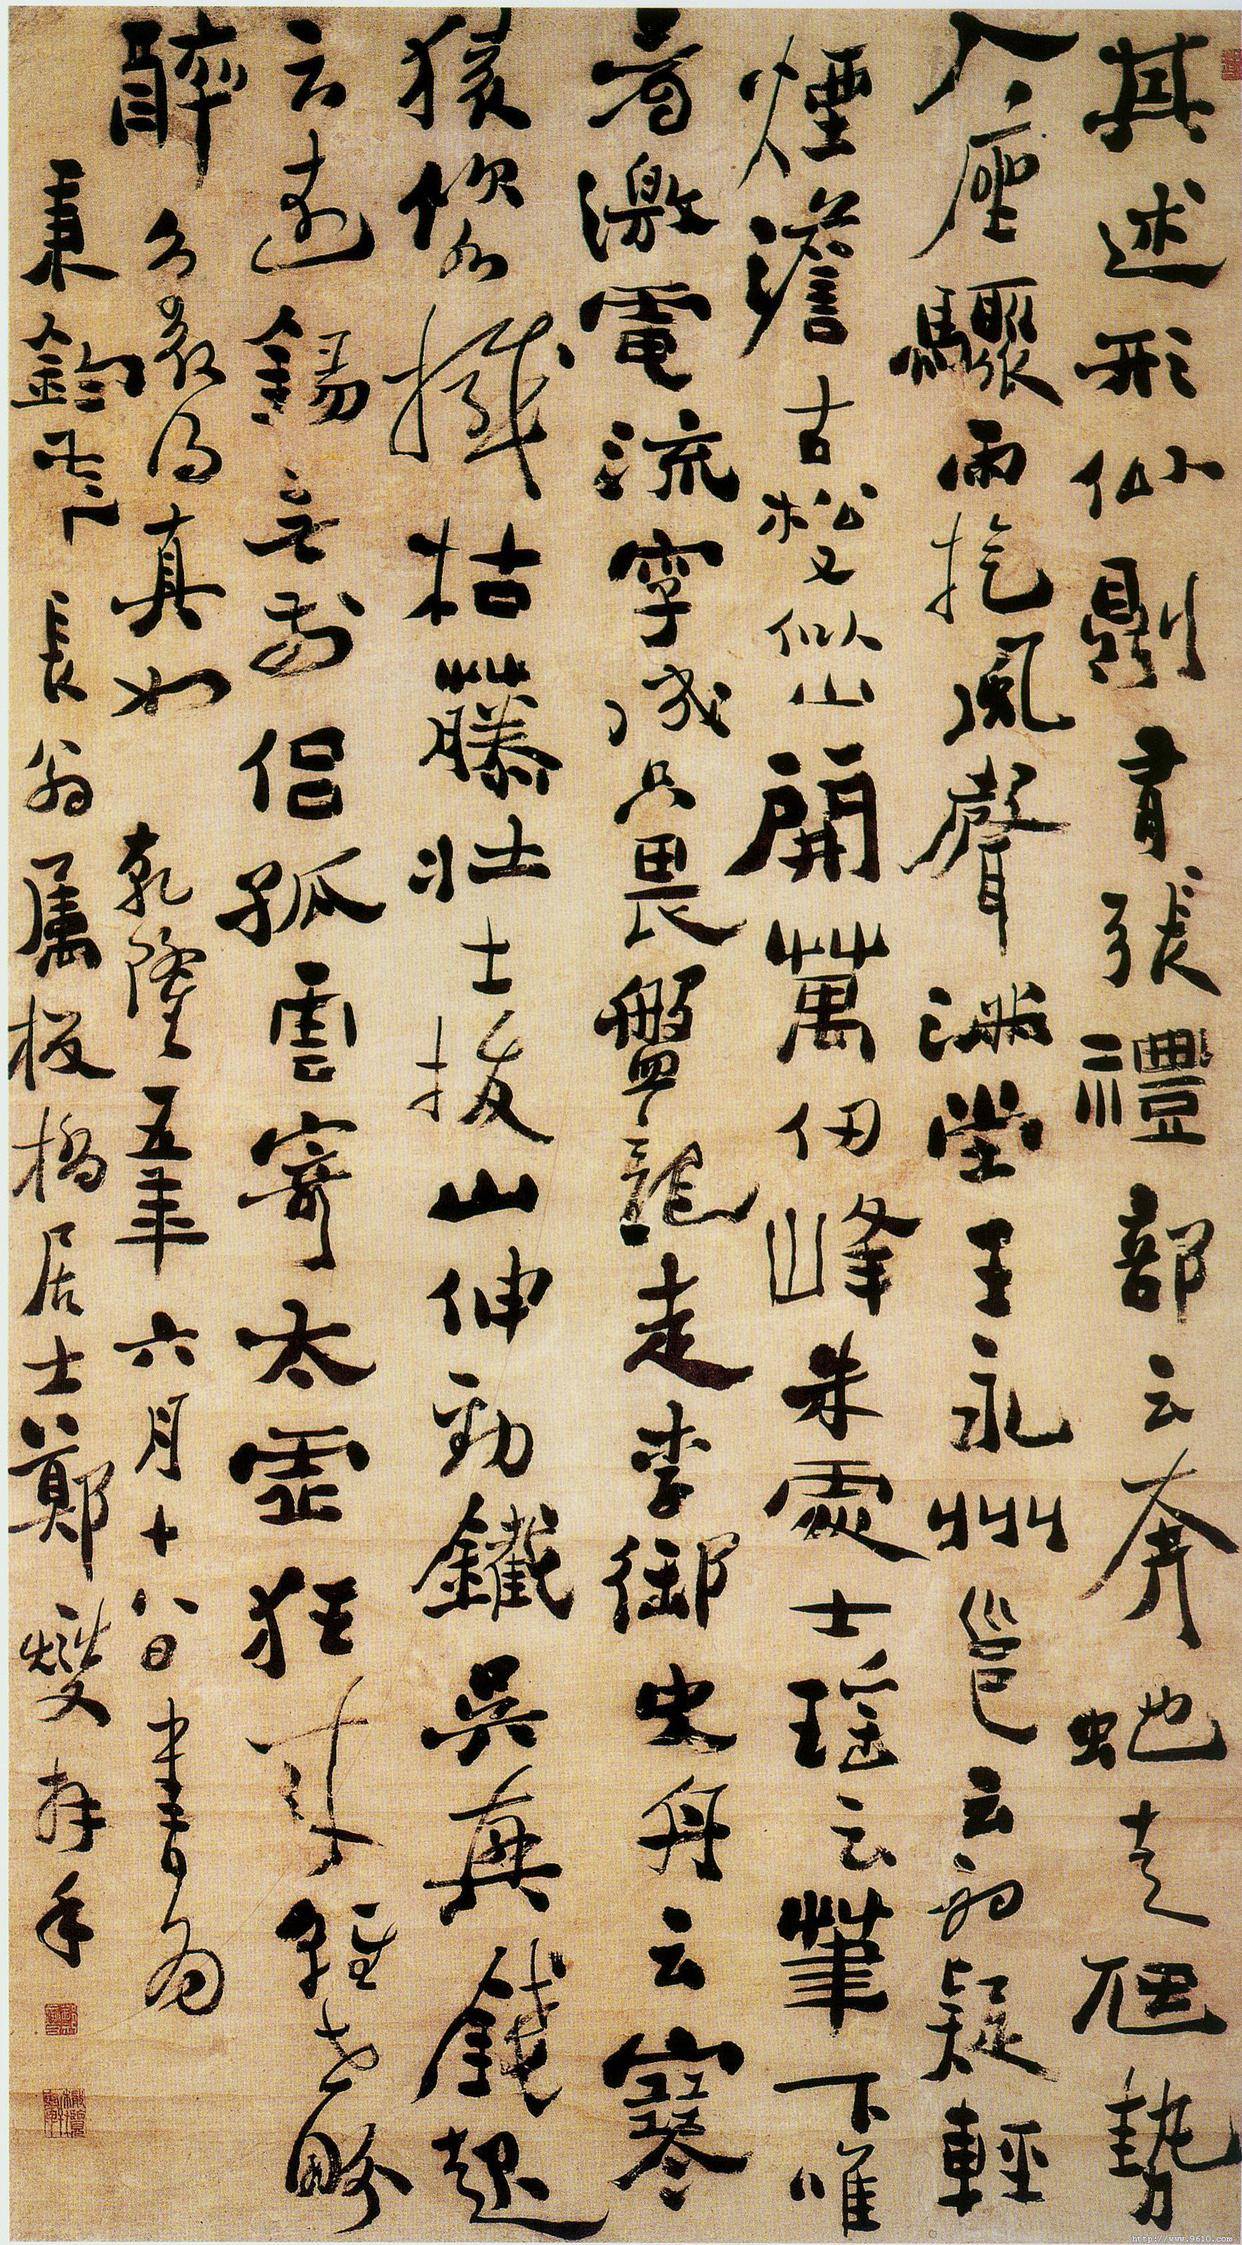 其述形似則有張禮部云奔虵走虺勢
入座驟雨旋風聲滿堂王永州邕云初疑輕
煙澹古松又似山開萬仞峰朱處士瑤云筆下唯
看激電流字成只畏盤龍走李御史舟云寒
猿飲水撼枯藤壯士拔山伸勁鐵吳興錢起
云遠錫無前侶孤雲寄太虛狂來輕世界
醉裏得真如 乾隆五年六月十八日書為
秉鈞 長翁屬板橋居士鄭燮拜手
http://www.9610.com